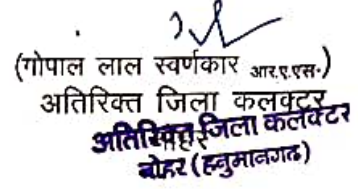 (गोपाल लाल स्वर्णकार आर.ए.एस.)
अतिरिक्त जिला कलक्टर
अतिरिक्त जिला कलक्टर
नोहर (हनुमानगढ)